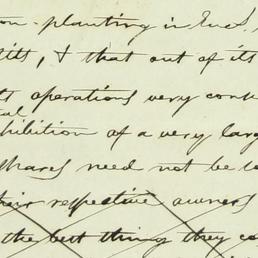 planting in
, & that out of its
operations very
hibition of a very larg
shares need not be
their respective owners
the best thing they co